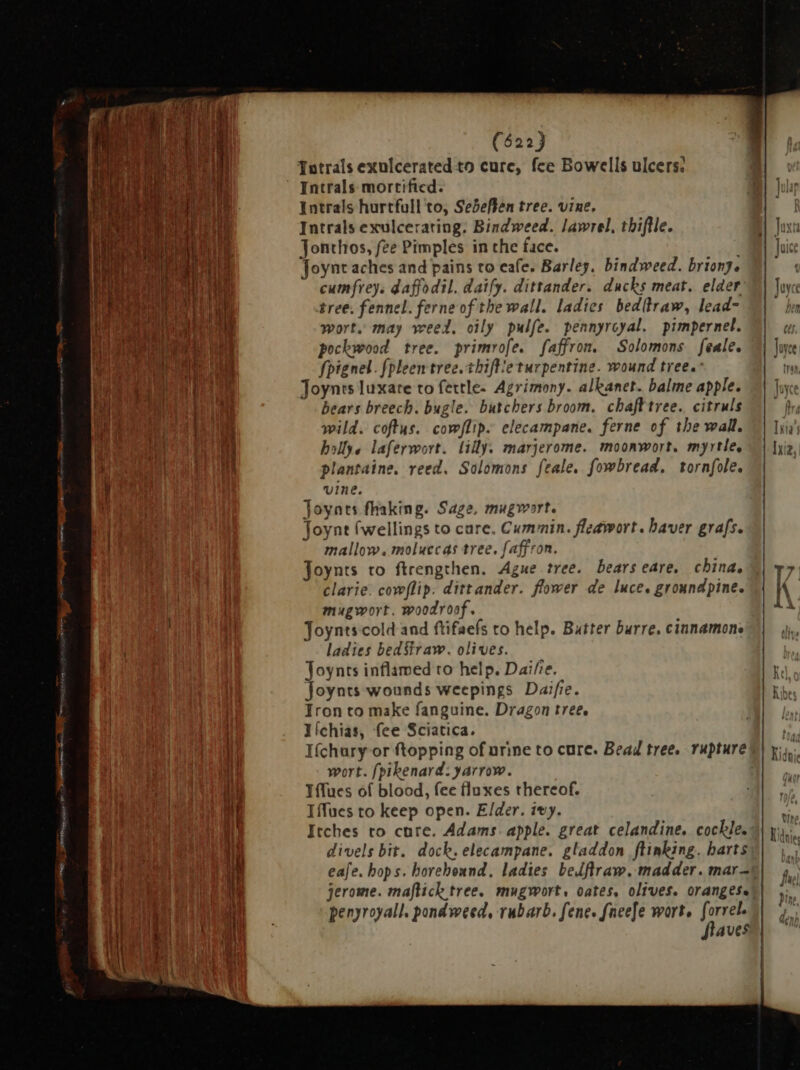 (622)
Intrals exulcerated to cure, see Bowells ulcers:
Intrals mortified.
Intrals hurtfull to, Sebesten tree. vine.
Intrals exulcerating. Bindweed. lawrel. thistle.
Jonthos, see Pimples in the face.
Joynt aches and pains to ease. Barley. bindweed. briony.
cumfrey. daffodil. daisy. dittander. ducks meat. elder
tree. fennel. ferne of the wall. ladies bedstraw, lead-
wort. may weed. oily pulse. pennyroyal. pimpernel.
pockwood tree. primrose. saffron. Solomons seale.
spignel. spleen tree. thistle turpentine. wound tree.
Joynts luxate to settle. Agrimony. alkanet. balme apple.
bears breech. bugle. butchers broom. chast tree. citruls
wild. costus. cowslip. elecampane. ferne of the wall.
hollye laserwort. lilly. marjerome. moonwort. myrtle.
plantaine. reed. Solomons seale. sowbread. tornsole.
vine.
Joynts shaking. Sage. mugwort.
Joynt swellings to cure. Cummin. fleawort. haver grass.
mallow. moluccas tree. saffron.
Joynts to strengthen. Ague tree. bears eare. china.
clarie. cowslip. dittander. flower de luce. groundpine.
mugwort. woodroof.
Joynts cold and stifaess to help. Butter burre. cinnamone
ladies bedstraw. olives.
Joynts inflamed to help. Daisie.
Joynts wounds weepings Daisie.
Iron to make sanguine. Dragon tree.
Ischias, see Sciatica.
Ischury or stopping of urine to cure. Bead tree. rupture
wort. spikenard. yarrow.
Issues of blood, see fluxes thereof.
Issues to keep open. Elder. ivy.
Itches to cure. Adams apple. great celandine. cockle.
divels bit. dock. elecampane. gladdon stinking. harts
ease. hops. horehound. ladies bedstraw. madder. mar-
jerome. mastick tree. mugwort. oates. olives. oranges.
penyroyall. pondweed. rubarb. sene. sneese wort. sorrel.
staves
Julap
Juice
Joyce
Joyce
K